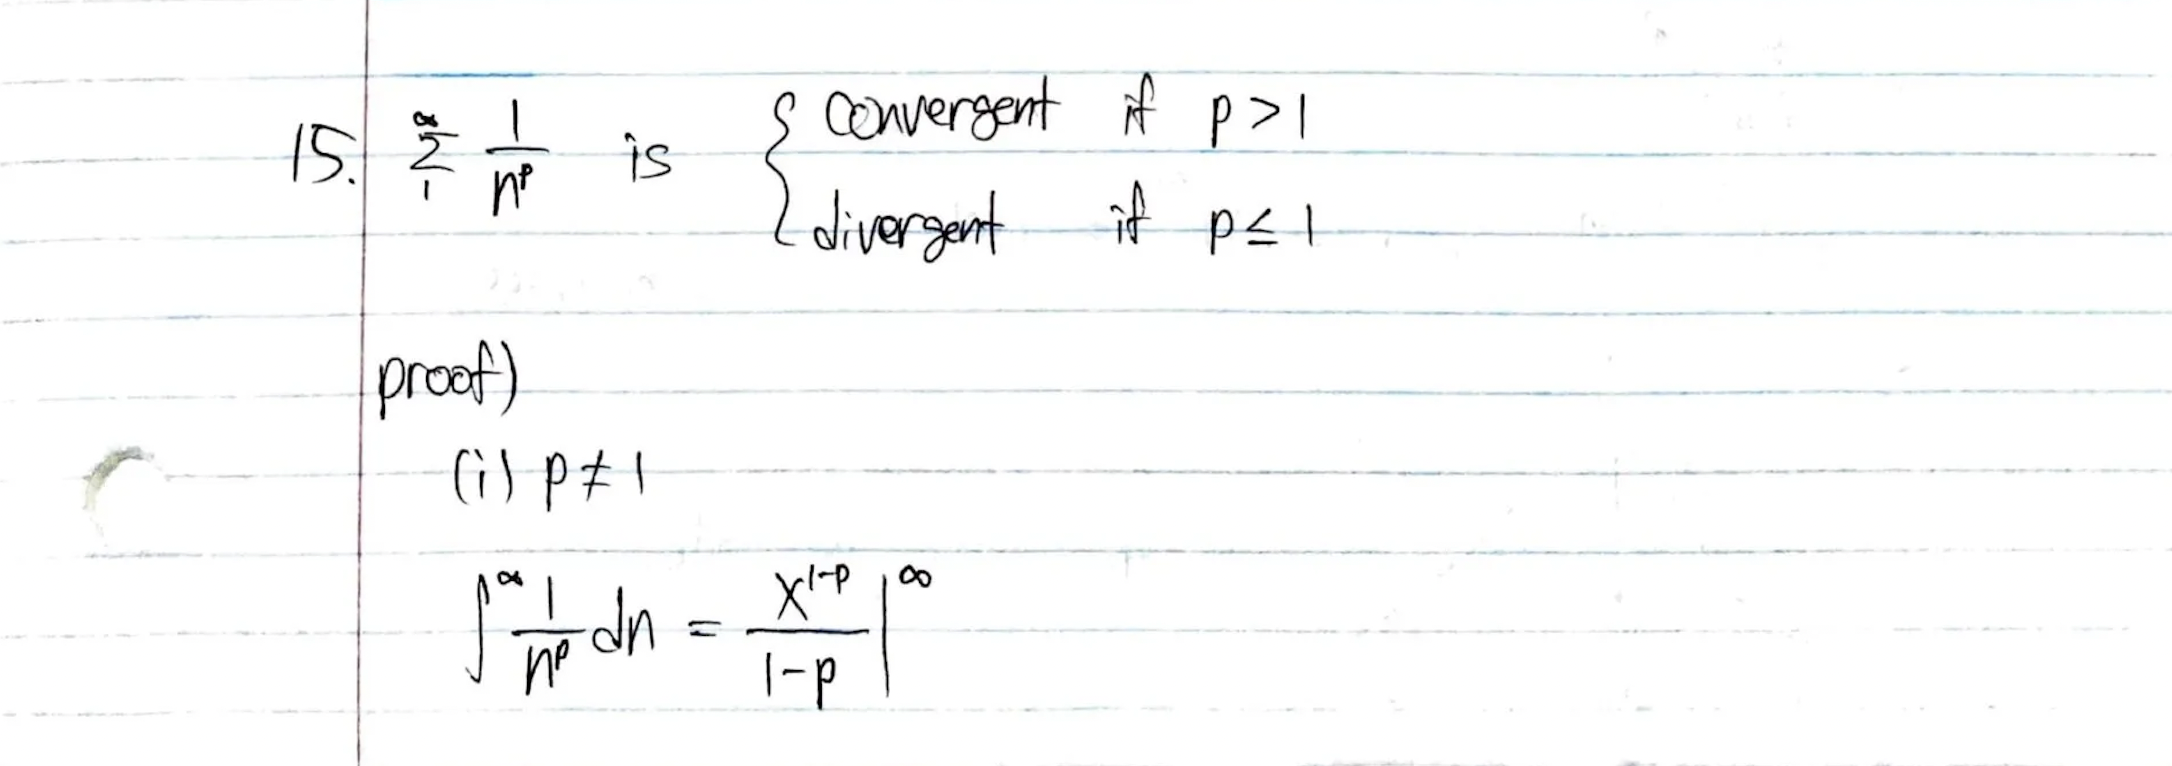 15. $\sum_{1}^{\infty} \frac{1}{n^p}$ is $\begin{cases} \text{convergent if } p > 1 \\ \text{divergent if } p \leq 1 \end{cases}$
proof)
(i) $p \neq 1$
$\int^{\infty} \frac{1}{n^p} dn = \frac{x^{1-p}}{1-p} \Big|^{\infty}$